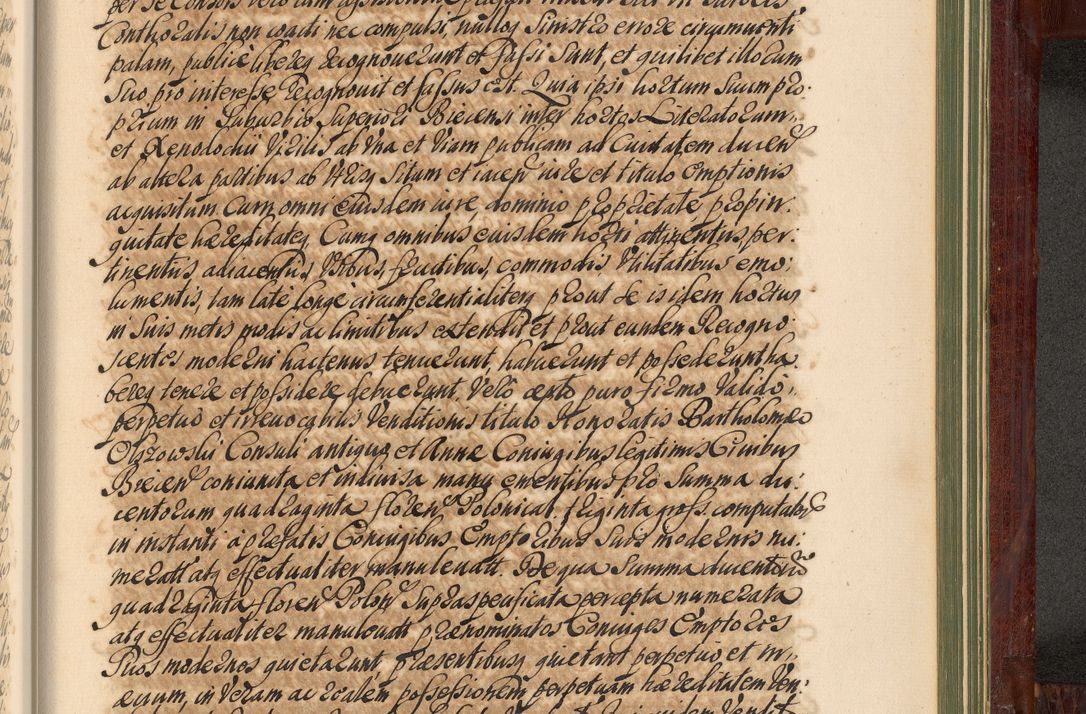 Conthoralis non coacti nec compulsi, nullog Sinistro errore circumuenti
palam, publice libereq recognouerunt et fassi sunt, et quilibet illorum
Suo pro interesse recognouit et fassus est. Quia ipsi hortum Suum pro.
prium in Suburbio Superiori Biecensi inter hortos Literatorum,
et Xenodochii Virilis ab vna et viam publicam ad Ciuitatem ducen
ab altera partibus ab Situm et iacen iure et titulo emptionis
acquisitum. Cum omni eiusdem iure, dominio proprietate propin.
quitate hæreditateq Cumq omnibus eiusdem horti attinentus, per:
tinentus adiacentus, vtibus, fructibus, commodis Vtilitatibus emo:
lumentis, tam late longe circumferentialiterq prout se is idem hortus
in Suis metis modis ac limitibus extendit et prout eundem Recogno:
scentes moderni hactenus tenuerunt, habuerunt et possederunt ha
bereq tenere et possidere debuerunt. Vero certo puro firmo Valido,
perpetuo et irreuocabilis Venditionis titulo Honoratis Bartholomæo
Olszowski Consuli antiquo et Annæ Coniugibus legitimis Ciuibus
Biecen coniuncta et indiuisa manu ementibus pro Summa du:
centorum quadraginta floren Polonical. triginta gross. computator
in instanti a prefatis Coniugibus Emptoribus Suis modernis nu:
merati atq effectualiter manuleuati. De qua Summa ducentoru
quadraginta floren Polon Supraspecificata percepta numerata
atq effectualiter manuleuati prænominatos Coniuges Emptores
Suos modernos quietarunt præsentibusq quietant perpetuo et in,
æuum, in Veram ac realem possessionem perpetuam hæreditatem Ven: